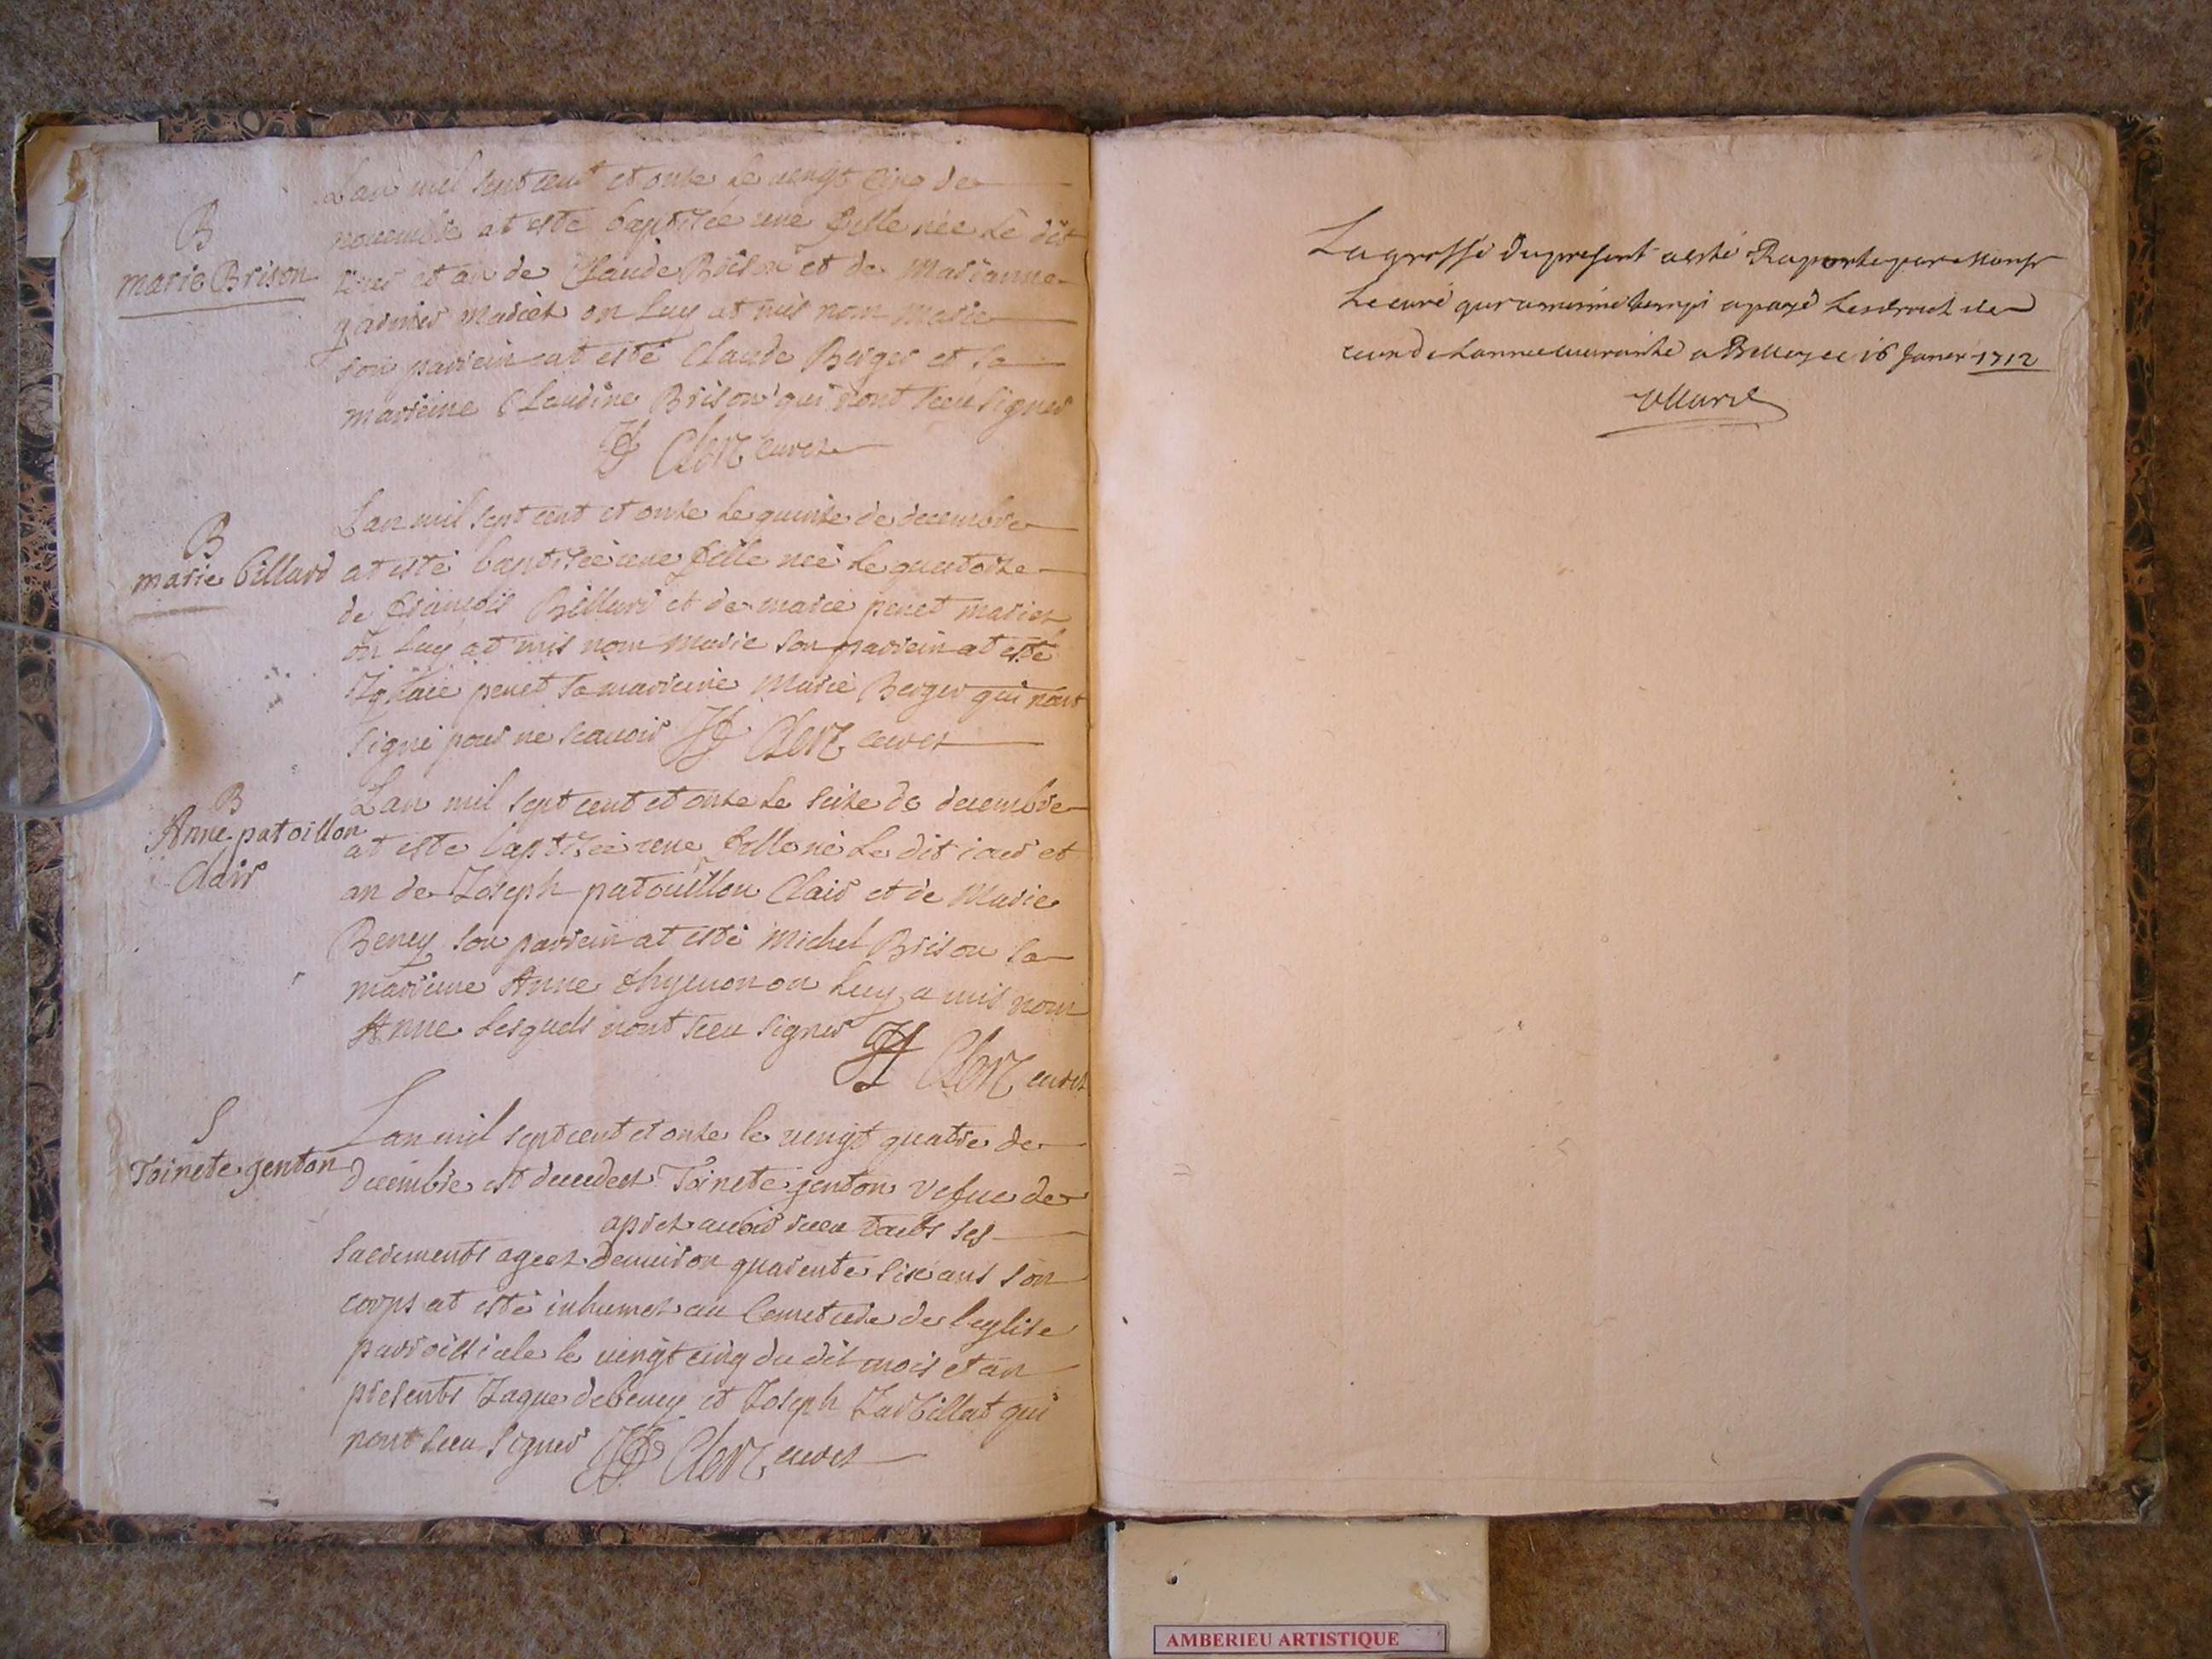 B
marie Brison
Lan mil sept cent et onze le vengt cinq de
novembre at este baptisée une fille née le dit
iour et an de Claude Brison et de Marianne
garnier mariet on luy at mis nom Marie
son parrein at esté Claude Berger et sa
marreine Claudine Brison qui n'ont sceu signer
Clerc curet
B
marie billard
Lan mil sept cent et onze le quinze de decembre
at esté baptisée une fille née le quatorze
de François Billard et de marie penet mariet
on luy at mis nom Marie son parrein at esté
penet sa marreine Marie Berger qui nont
signé pour ne scauoir Clerc curet
B
Anne patoillon
Clair
Lan mil sept cent et onze le seize de decembre
at este baptisée une fille né le dit iour et
an de Joseph patouillon Clair et de Marie
Beney son parrein at esté Michel Brison sa
marreine Anne on luy a mis nom
Anne lesquels nont sceu signer
Clerc curet
S
Toinete genton
Lan mil sept cent et onze le vengt quatre de
decembre est decedeet Toinete genton vefue de
apret auoir receu touts ses
sacrements ageet denuiron quarente six ans son
corps at esté inhumet au cemetiere de leglise
parroissiale le vengt cinq du dit mois et an
presents Jaque debeney et Joseph Jarbillat qui
nont sceu signer Clerc curet
La grosse du present a esté Raporté par Monsr
Le curé qui a mesme temps a payé les droit de
de Lannee courante a Belley ce 16 Janer 1712
AMBERIEU ARTISTIQUE